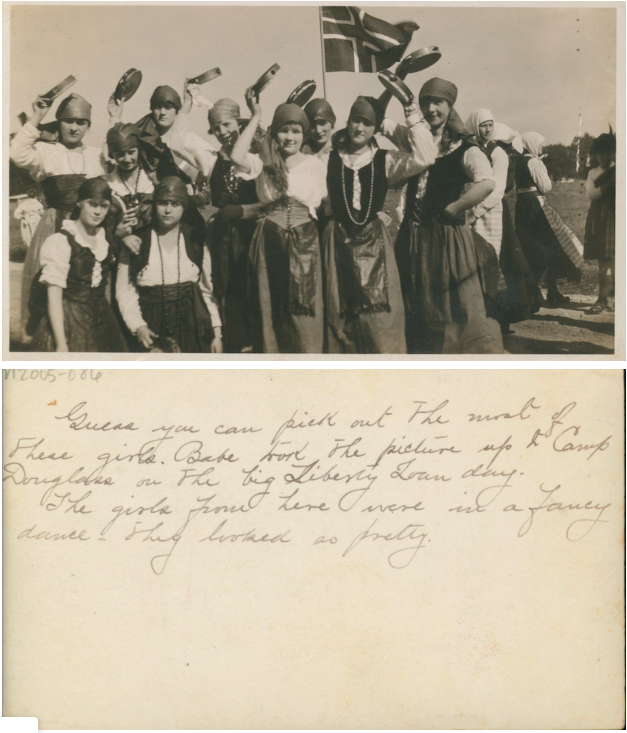 M2005-086
Guess you can pick out the most of
these girls. Babe took the picture up to Camp
Douglass on the big Liberty Loan day.
The girls from here were in a fancy
dance - they looked so pretty.